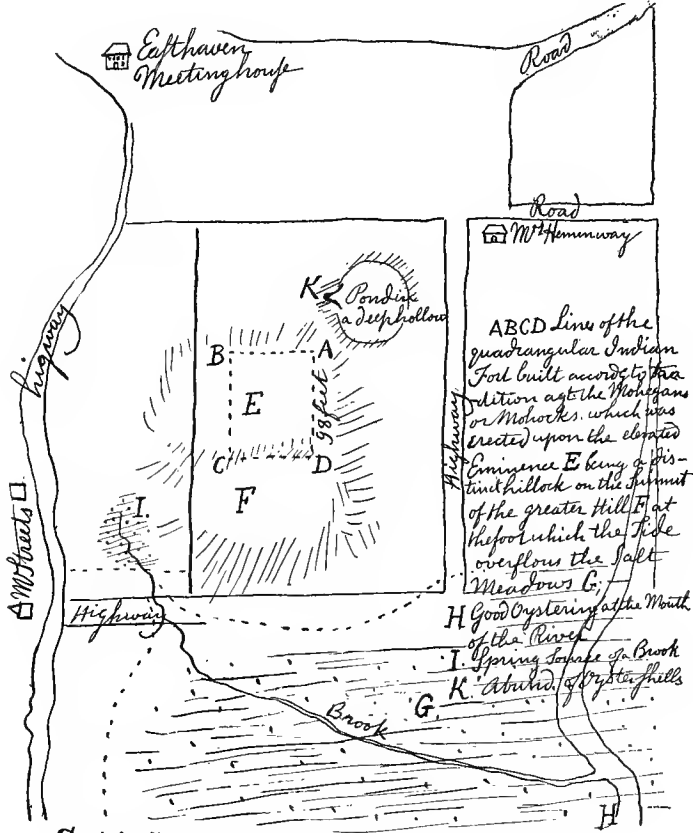 Easthaven
Meetinghouse
Road
Road
Mr. Hemingway
K
Pond in
a deep hollow
B
A
E
98 feet
C
D
F
I.
higway
Highway
Mr Streets
Highway
ABCD Lines of the
quadrangular Indian
Fort built accordg to tra
dition agt the Mohegans
or Mohocks. which was
erected upon the elevated
Eminence E being a dis-
tinct hillock on the Summit
of the greater Hill F at
the foot which the Tide
overflous the Salt
Meadows G;
H Good Oystering at the Mouth
of the River
I. Spring Source of a Brook
K. Abund. of Oyster shells
G.
Brook
H